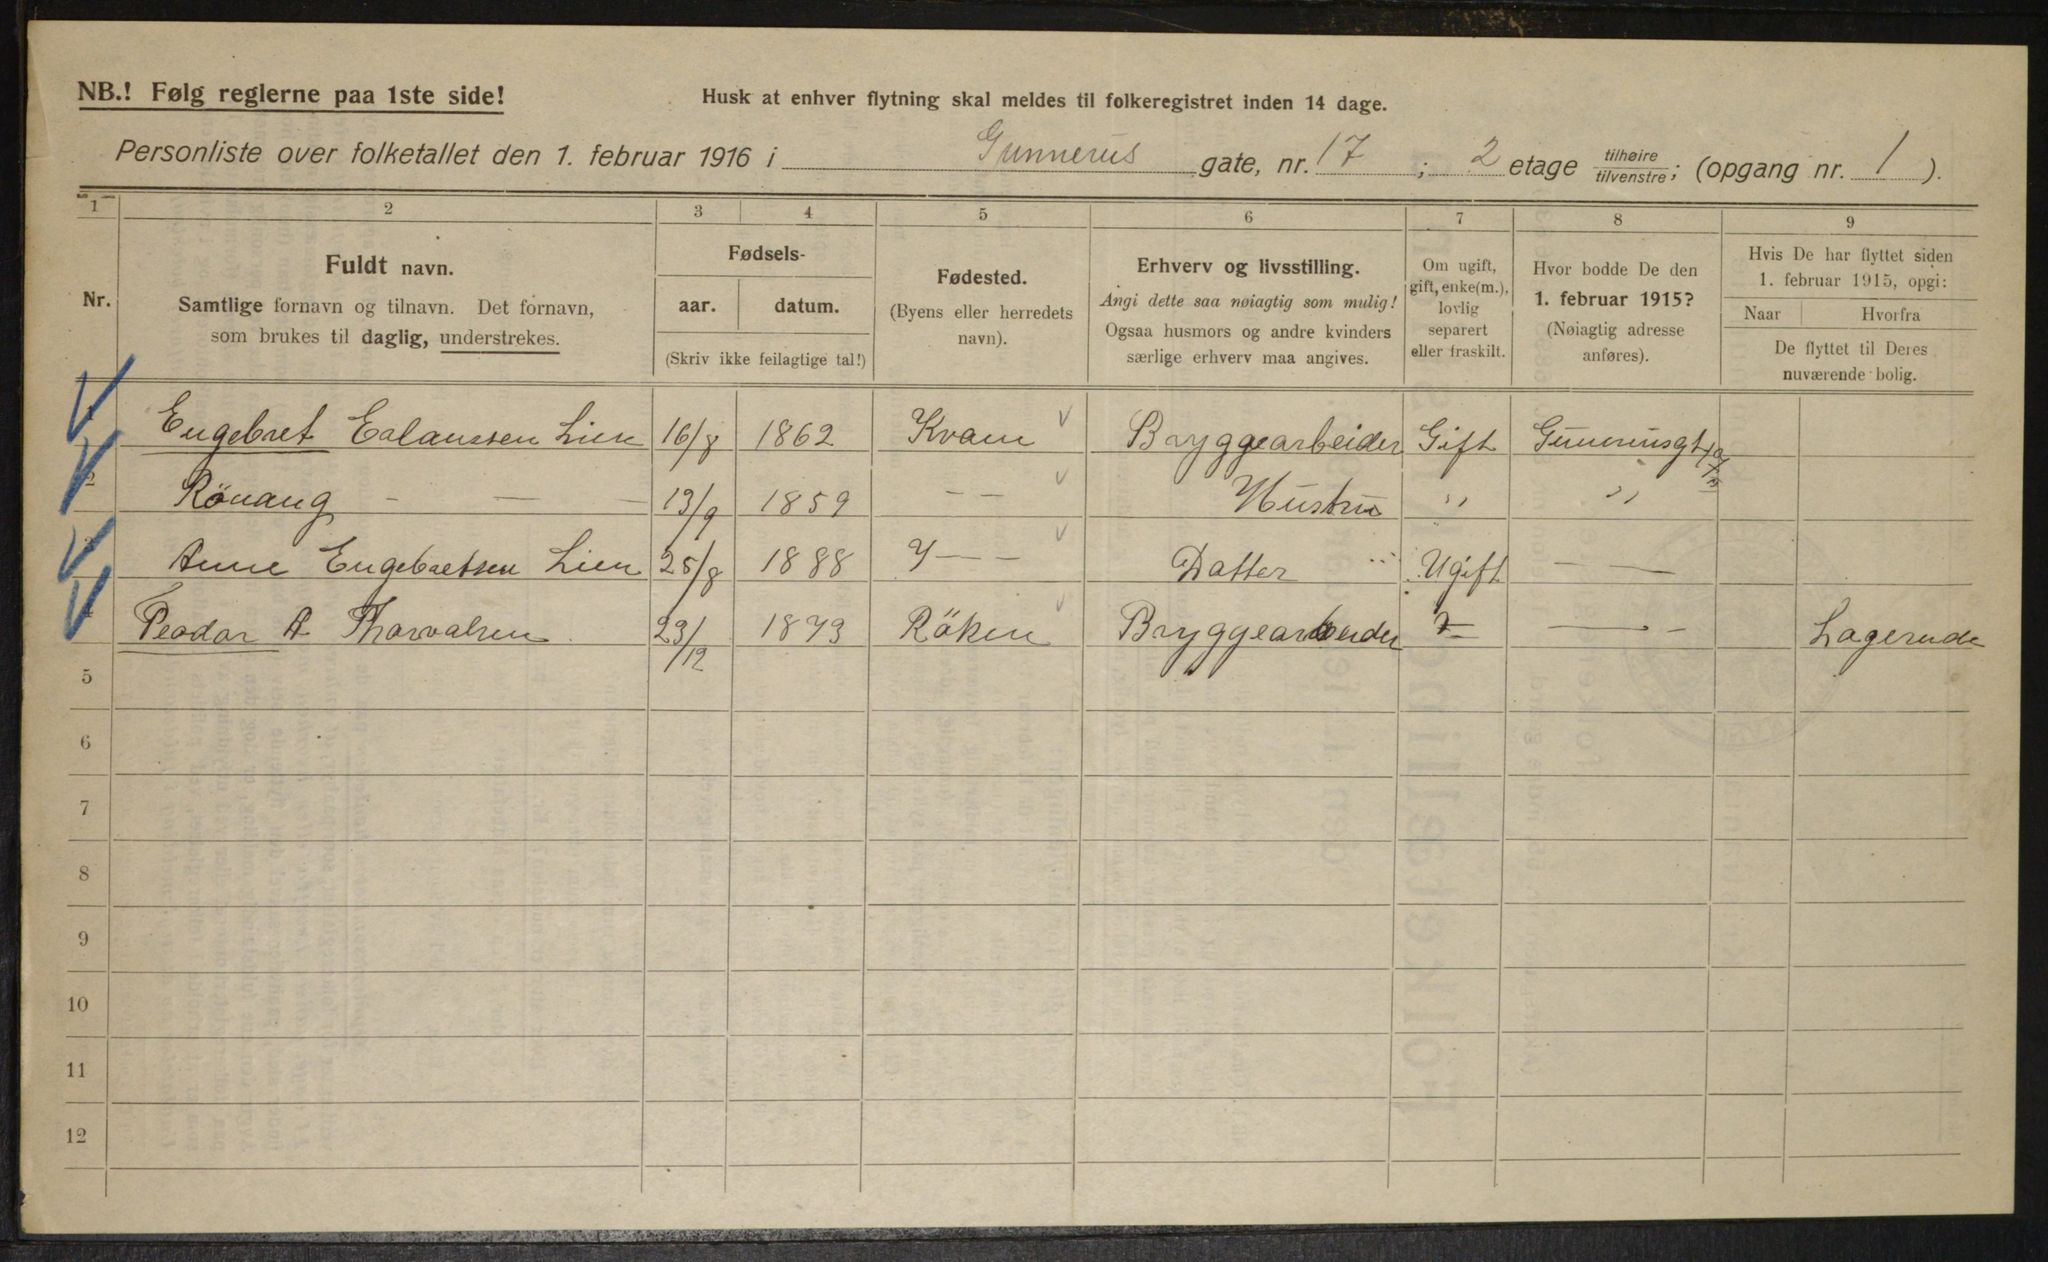 NB.! Følg reglerne paa 1ste side!
Husk at enhver flytning skal meldes til folkeregistret inden 14 dage.
Personliste over folketallet den 1. februar 1916 i Gunnerus gate, nr. 17 ; 2 etage tilhøire tilvenstre ; (opgang nr. 1 ).
1 2 3 4 5 6 7 8 9
Nr.
Fuldt navn.
Samtlige fornavn og tilnavn. Det fornavn,
som brukes til daglig, understrekes.
Fødsels-
aar. datum.
(Skriv ikke feilagtige tal!)
Fødested.
(Byens eller herredets
navn).
Erhverv og livsstilling.
Angi dette saa nøiagtig som mulig!
Ogsaa husmors og andre kvinders
særlige erhverv maa angives.
Om ugift,
gift, enke(m.),
lovlig
separert
eller fraskilt.
Hvor bodde De den
1. februar 1915?
(Nøiagtig adresse
anføres).
Hvis De har flyttet siden
1. februar 1915, opgi:
Naar Hvorfra
De flyttet til Deres
nuværende bolig.
1 Engebret Erlanssen Lien 16/8 1862 Kvam Bryggearbeider Gift Gunerusgt
2 Rönaug - — — 13/9 1859 — — Hustru " "
3 Anne Engebretsen Lien 25/8 1888 — — Datter Ugift — —
4 Teodor A Thorvalsen 23/12 1873 Röken Bryggearbeider — — - Lagerud
5
6
7
8
9
10
11
12